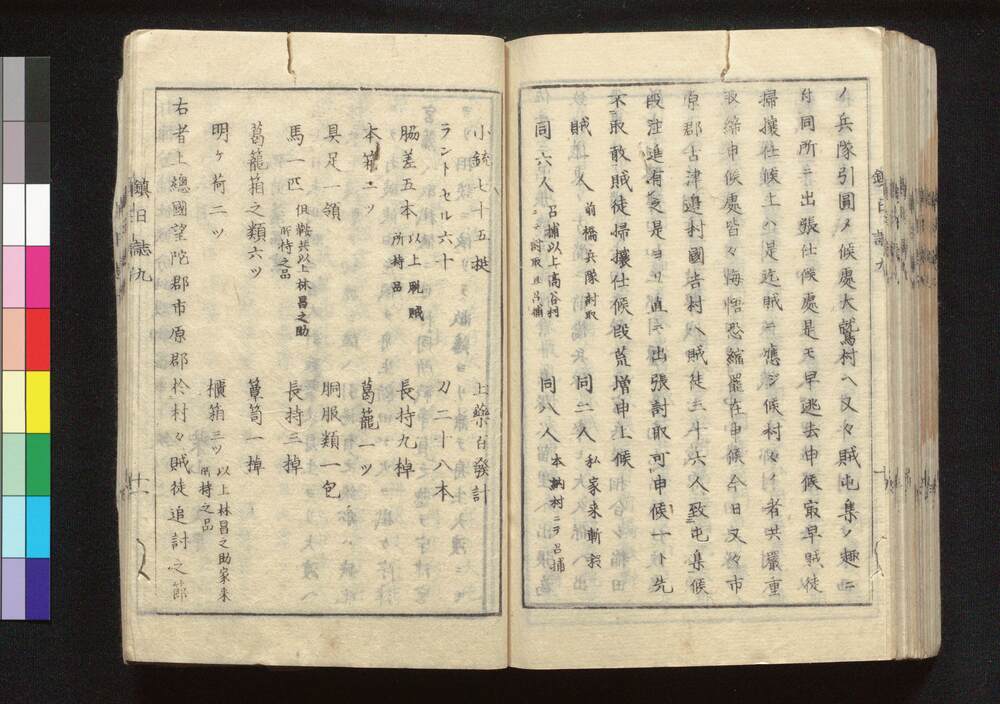 ノ兵隊引圓メ候處大鷲村ヘ又々賊屯集ノ趣ニ
付同所ニ出張仕候處是モ早逃去申候最早賊徒
掃攘仕候上ハ是迄賊ニ應シ候村々ノ者共嚴重
取締申候處皆々悔悟恐縮罷在申候今日又々市
原郡古津邉村國吉村ヘ賊徒三十六人致屯集候
段注進有之是ヨリ直ニ出張討取可申候一ト先
不取敢賊徒掃攘仕候段荒増申上候
賊一人 前橋兵隊討取 同二人 私家来斬殺
同六人 召捕以上高谷村ニテ討取且召捕 同八人 本納村ニヲ召捕
鎮日誌九
十
小銃七十五挺 上樂台發計
ラントセル六十 刀二十八本
脇差五本 以上脱賊所持品 長持九棹
本箱二ツ 葛蘢一ツ
具足一領 胴服類一包
馬一匹 但鞍共以上林昌之助所持之品 長持三棹
葛籠箱之類六ツ 簞笥一棹
明ヶ荷二ツ 櫃箱三ツ 以上林昌之助家来所持之品
右者上總國望陀郡市原郡於村々賊徒追討之節
鎮日誌九
十一